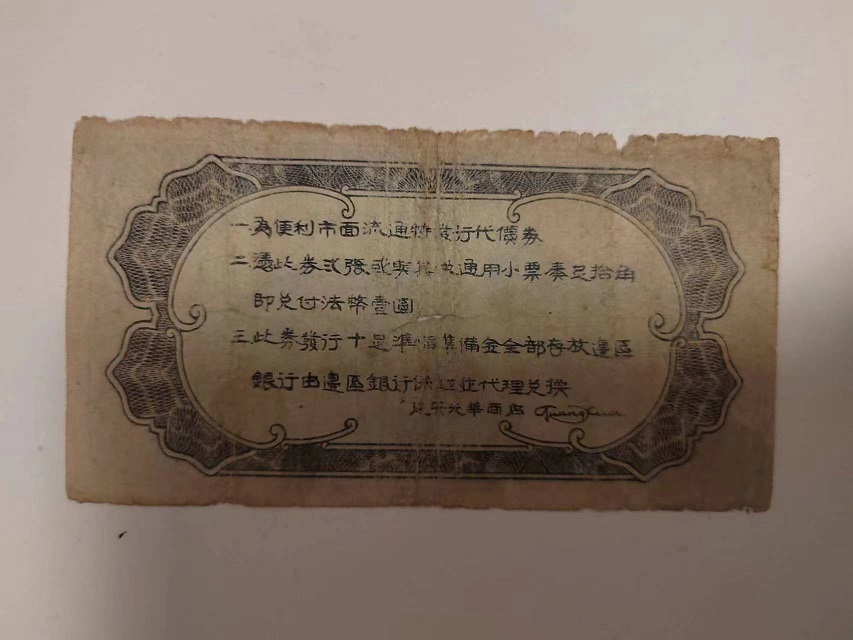 一為便利市面流通特發行代價券
二憑此券弍張或與 通用小票湊足拾角
即兑付法幣壹圓
三此券發行十足準 備金全部存放邊區
銀行由邊區銀行保証並代理兑換
光華商店